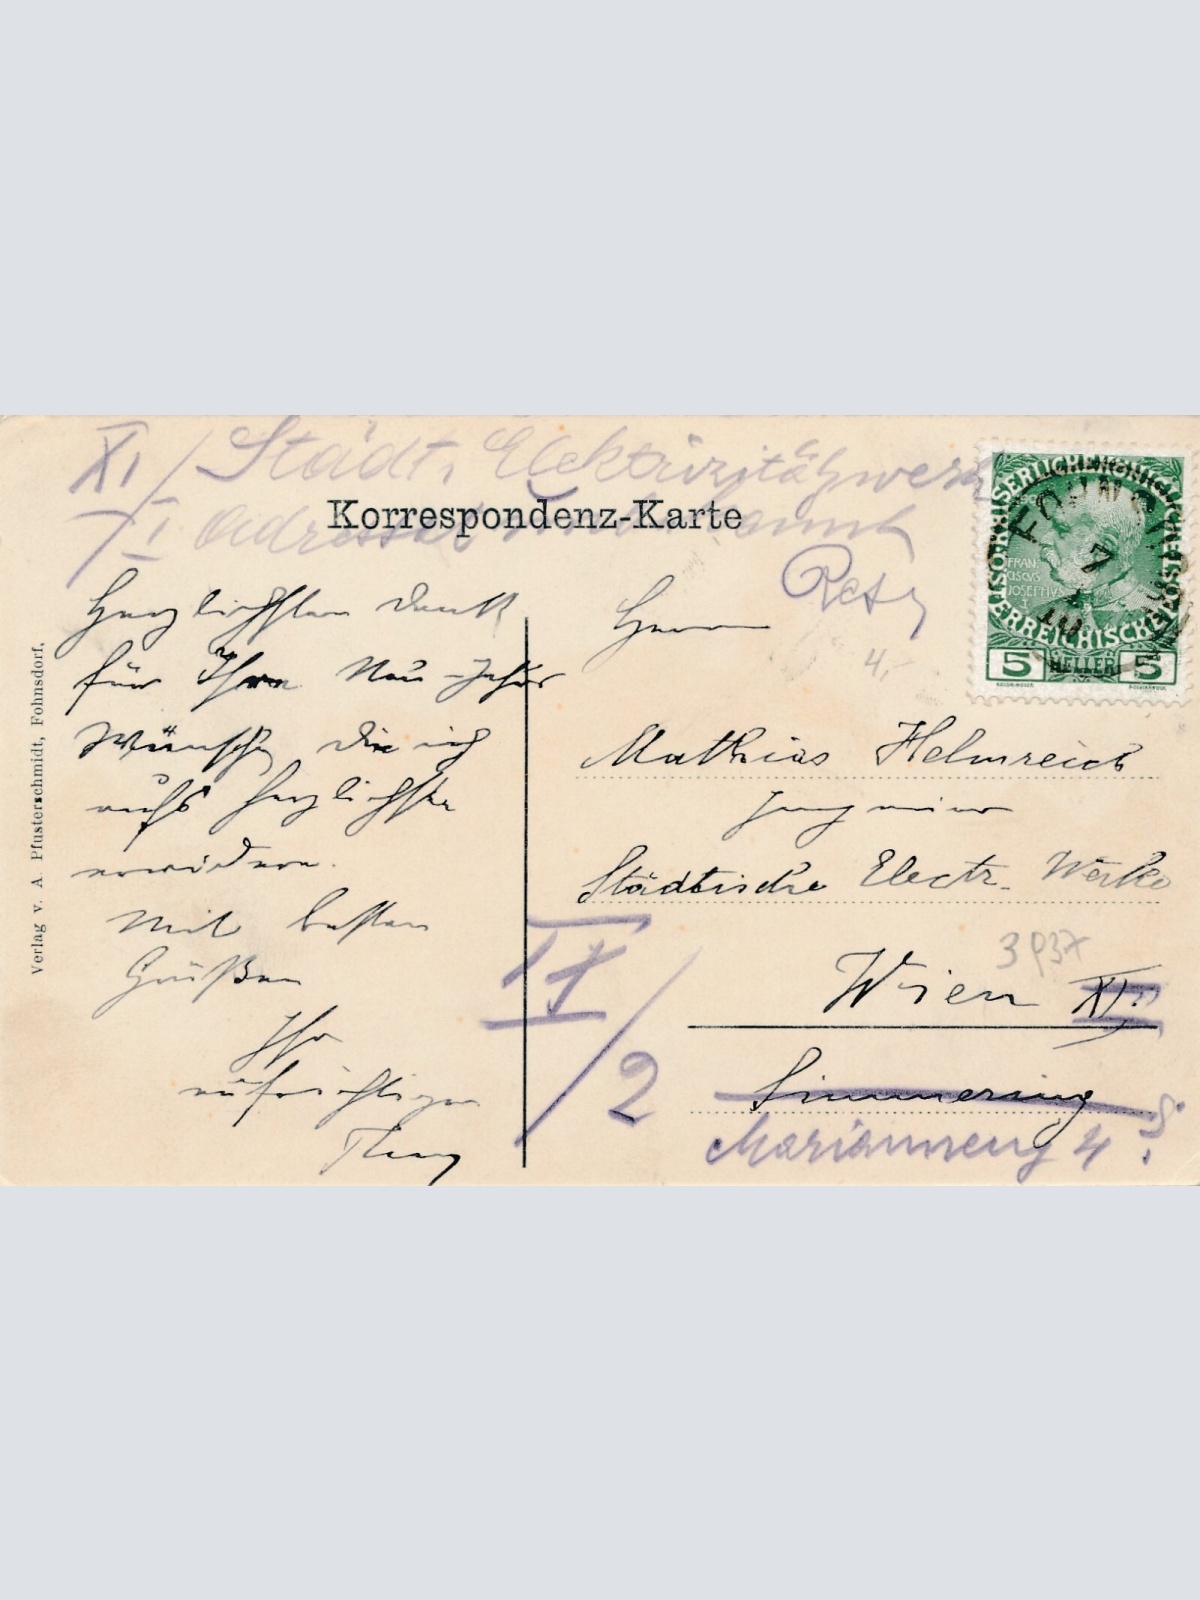 XI/ Städt. Elektrizitätswerk
I Adresse
Korrespondenz-Karte
Retz
4.-
FOHNSDORF
7
10
KAISERLICHE KÖNIGLICHE ÖSTERREICHISCHE POST
FRANCISCVS JOSEPHVS I
5 HELLER 5
Verlag v. A Pfusterschmidt, Fohnsdorf,
Herzlichsten Dank
für Ihre Neu-Jahrs
Wünsche die ich
aufs herzlichste
erwidere.
Mit besten
Grüßen
Ihr
aufrichtiger
Herrn
Mathias Helmreich
Ingenieur
Städtische Electr. Werke
3937
Wien XI.
Simmering
IX/2
Marianneng 4